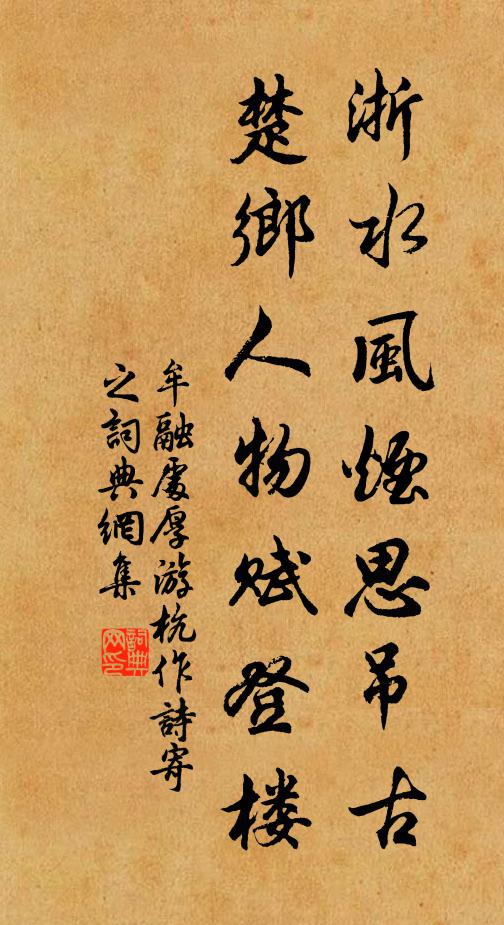 浙水風煙思吊古
楚鄉人物賦登楼
牟融處厚游杭作詩寄
之詞典網集
詞典网印